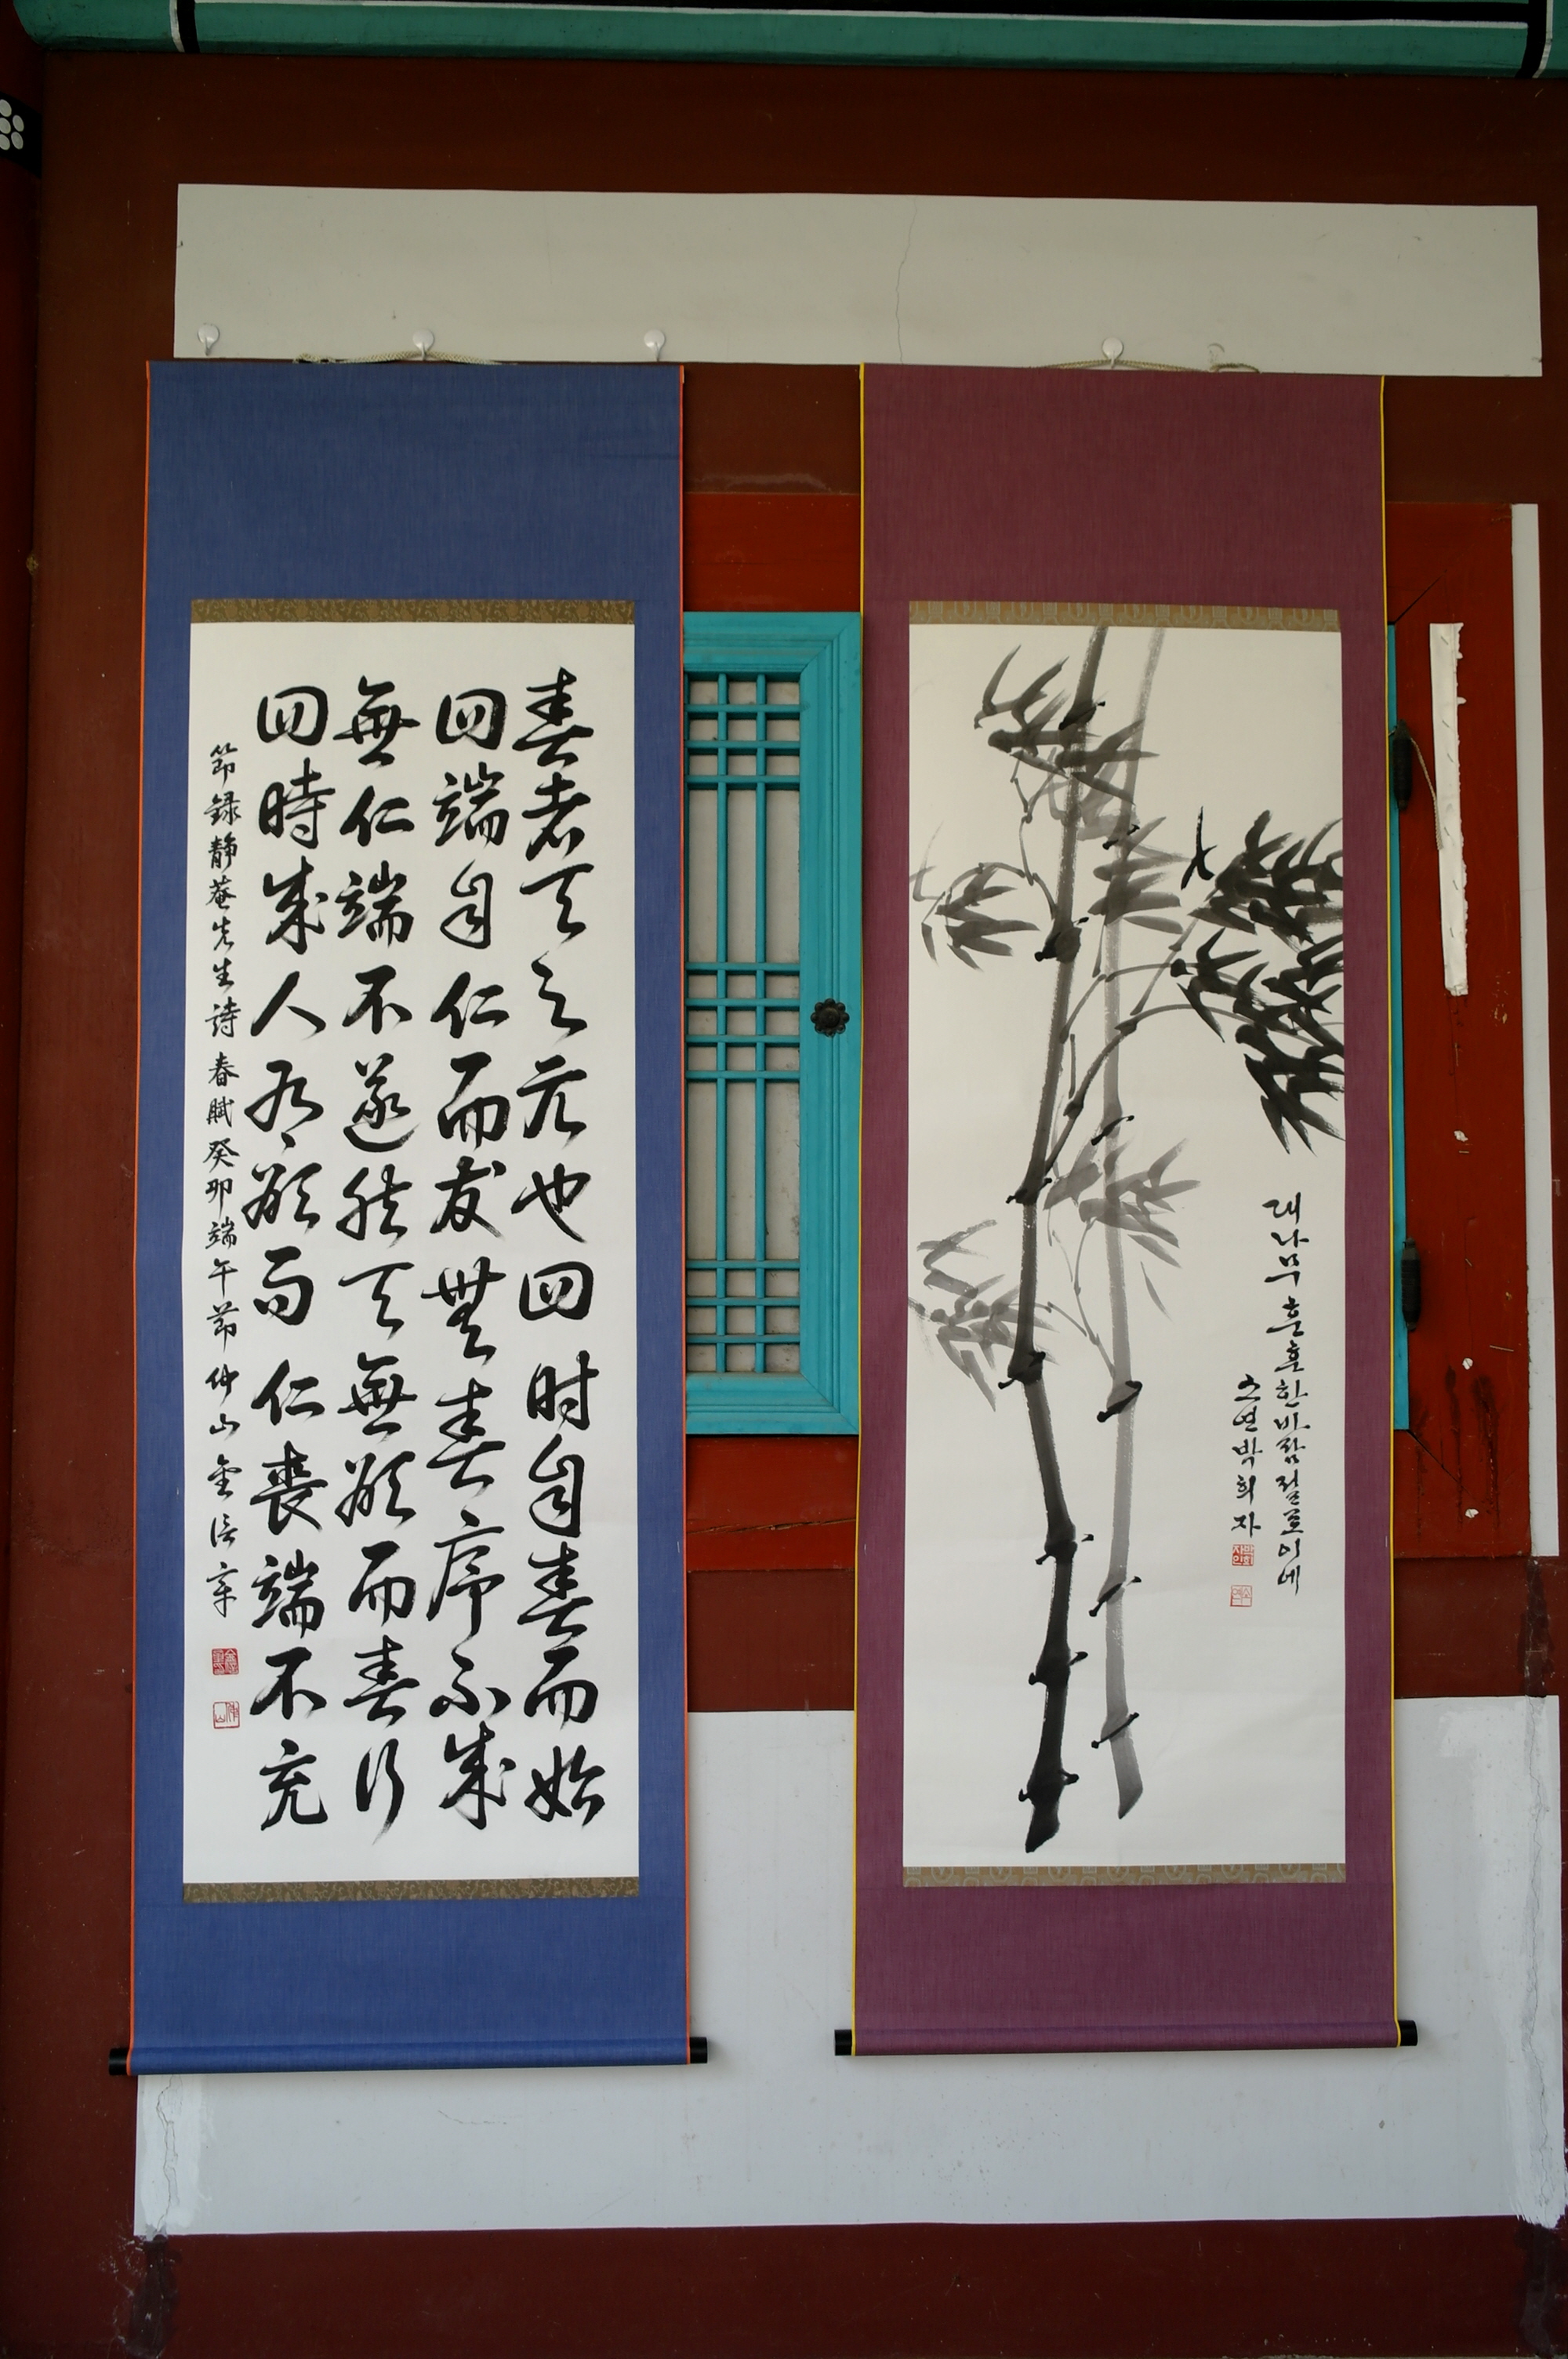 春者天之元也四时自春而始
四端自仁而發無春序不成
無仁端不遂然天無欲而春行
四時成人有欲而仁喪端不充
節録静菴先生詩春賦癸卯端午節仲山金
대나무 훈훈한 바람 절로 이네
소연 박희자